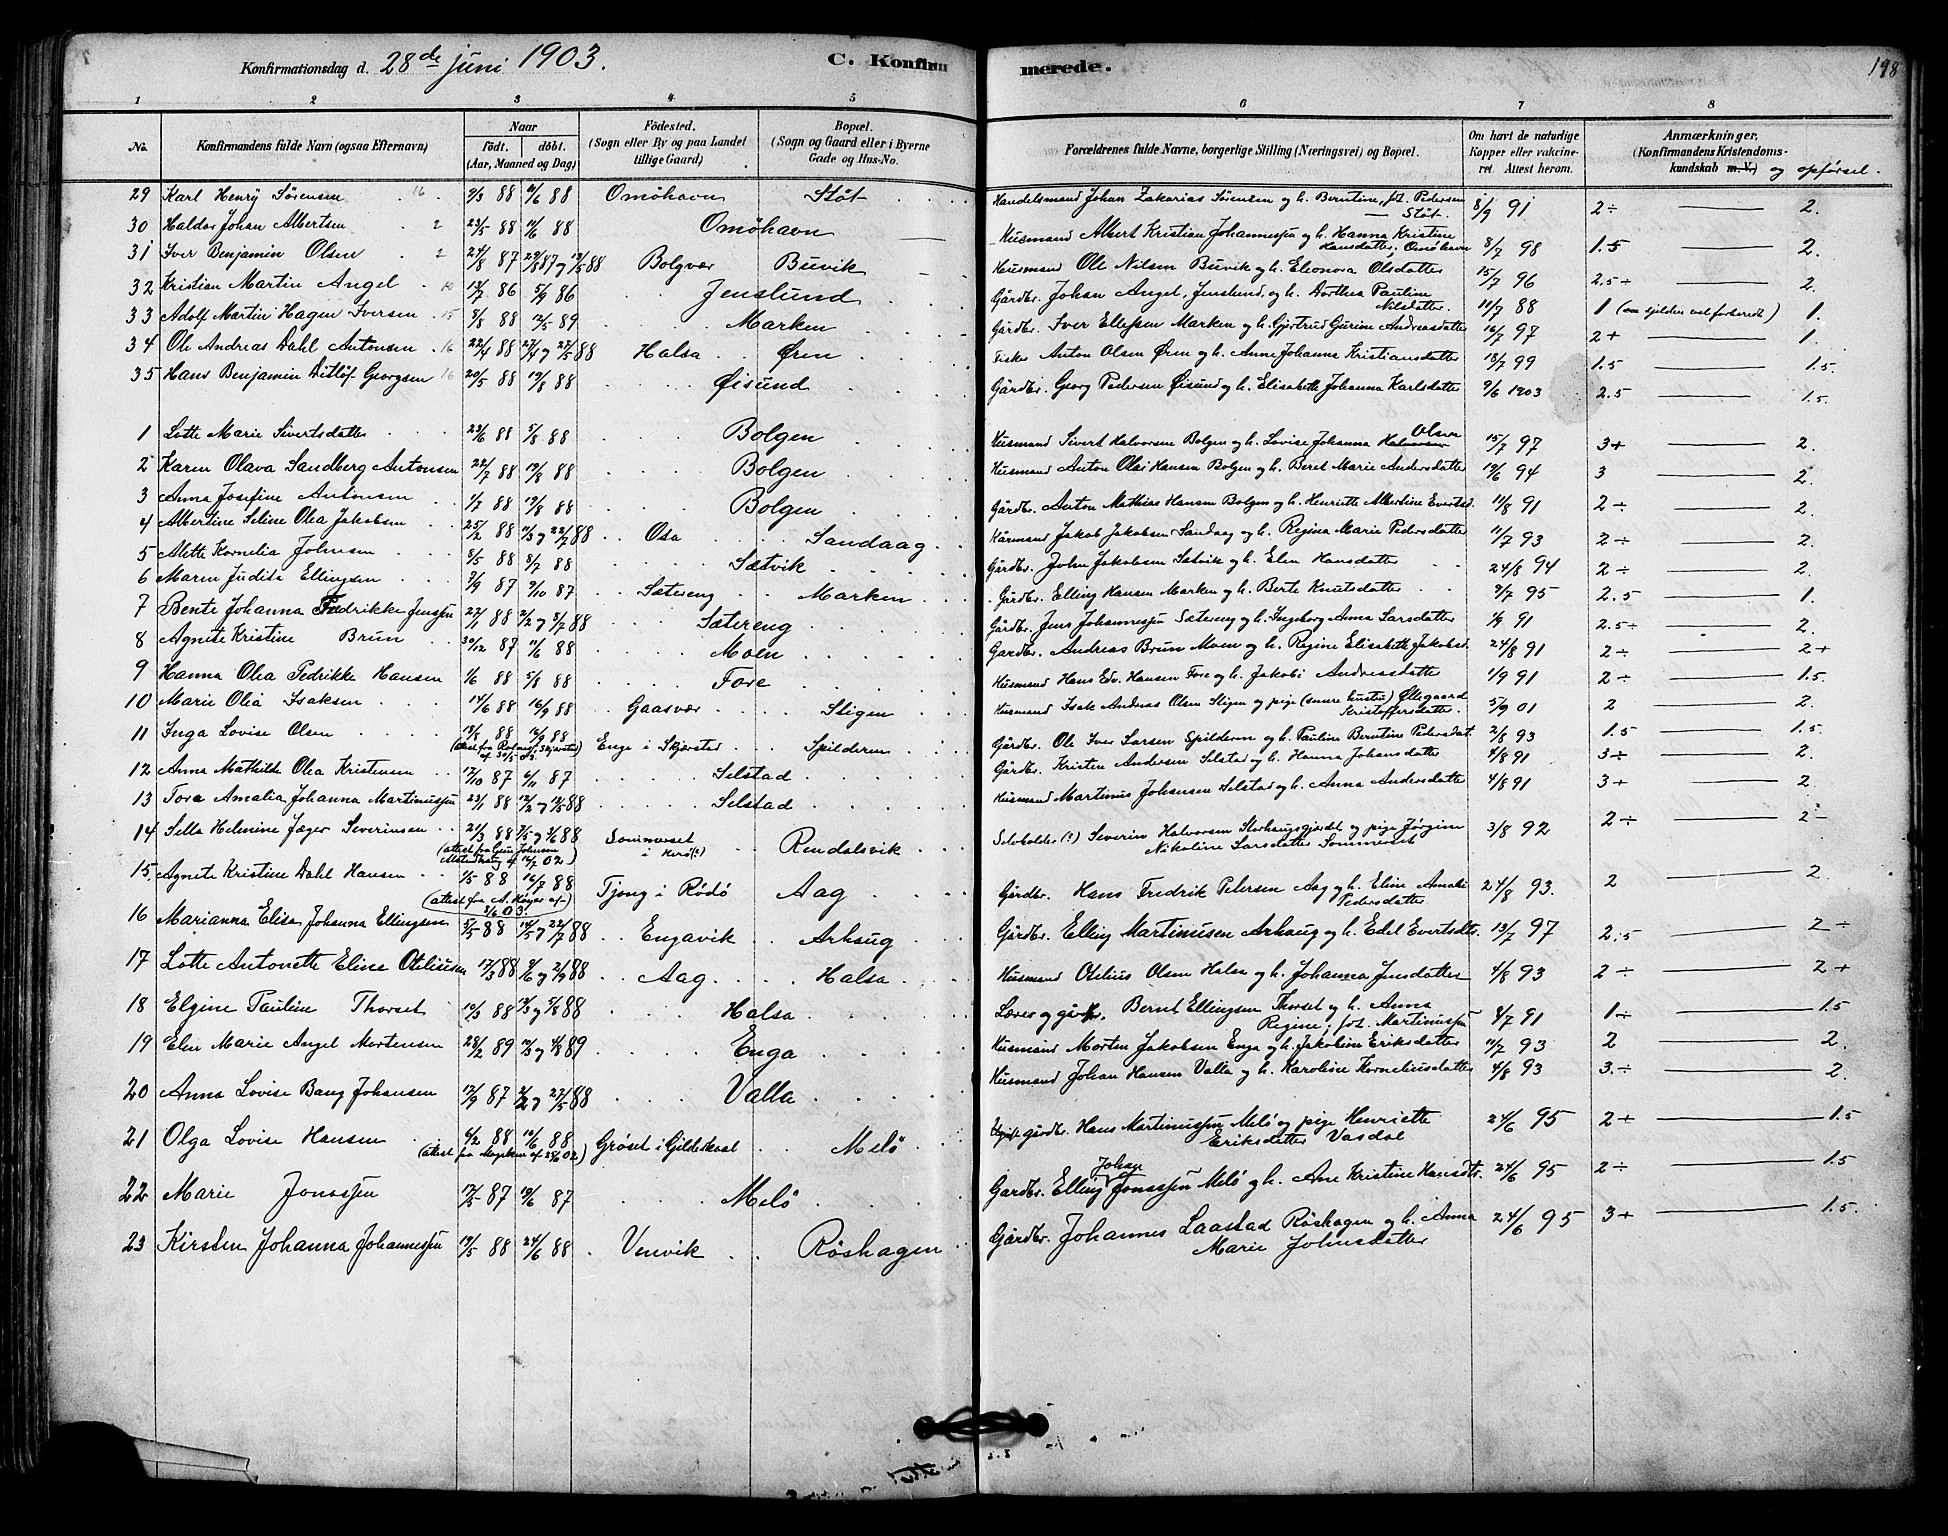 Konfirmationsdag d. 28de juni 1903.
C. Konfir
merede.
198
1 2 3 4 5 6 7 8
No.
Konfirmandens fulde Navn (ogsaa Efternavn)
Naar
født. døbt.
(Aar, Maaned og Dag)
Födested.
(Sogn eller By og paa Landet
tillige Gaard)
Bopæl.
(Sogn og Gaard eller i Byerne
Gade og Hus-No.
Forældrenes fulde Navne, borgerlige Stilling (Næringsvei) og Bopæl.
Om havt de naturlige
Kopper eller vakcine-
ret. Attest herom.
Anmærkninger,
(Konfirmandens Kristendoms-
kundskab m. V.) og opförsel.
29 Karl Henry Sørensen 16 88 88 Omöhavn Støt Handelsmand Johan Zakarias Sörensen og h. Berntine, föt Pedersen 8/9 91 2÷ 2.
Støt.
30 Haldor Johan Albertsen 2 23/5 88 88 Omöhavn Husmand Albert Kristian Johannessen og h. Hanna Kristine
Hansdatter, Omöhavn 8/7 98 1.5 2.
31 Iver Benjamin Olsen 2 24/8 87 88 Bolgvær Buvik Husmand Ole Nilsen Buvik og h. Eleonora Olsdatter 15/7 96 2.5÷ 2.
32 Kristian Martin Angel 13/7 86 5/9 86 Jenslund Gårdbr. Johan Angel, Jenslund, og h. Dorthea Pauline
Nilsdatter 11/7 88 1 1.
33 Adolf Martin Hagen Iversen 15 8/8 88 12/5 89 Marken Gårdbr. Iver Ellefsen Marken og h. Gjertrud Gurine Andreasdatter 16/7 97 2+ 1.
34 Ole Andreas Dahl Antonsen 16 22/4 88 88 Halsa Øren Anton Olsen Øren og h. Anne Johanna Kristiansdatter 18/7 99 1.5 1.5.
35 Hans Benjamin Ditløf Georgsen 16 20/5 88 19/8 88 Øisund Gårdbr. Georg Pedersen Øisund og h. Elisabeth Johanna Karlsdatter 9/6 1903 2.5 1.5.
1 Lotte Marie Sivertsdatter 23/6 88 5/8 88 Bolgen Husmand Sivert Halvorsen Bolgen og h. Lovise Johanna Halvorsen Olsen 15/7 97 3+ 2.
2 Karen Olava Sandberg Antonsen 22/7 88 19/8 88 Bolgen Husmand Anton Olai Hansen Bolgen og h. Beret Marie Andersdatter 94 3 2.
3 Anna Josefine Antonsen 1/7 88 19/8 88 Bolgen Gårdbr. Anton Mathias Hansen Bolgen og h. Henriette Albertine Evertsd. 11/8 91 2÷ 2.
4 Albertine Seline Olea Jakobsen 25/2 88 88 Osa Sandaag Kårmand Jakob Jakobsen Sandaag og h. Regina Marie Pedersdatter 11/7 93 2÷ 2.
5 Alette Kornelia Johnsen 8/5 88 8/7 88 Sætvik Gårdbr. John Jakobsen Setvik og h. Elen Hansdatter 24/8 94 2÷ 2.
6 Maren Judita Ellingsen 7/9 87 9/10 87 Sætereng Marken Gårdbr. Elling Hansen Marken og h. Berte Knutsdatter 9/7 95 2.5 1.
7 Bente Johanna Fredrikke Jenssen 22/1 88 88 Sætereng Gårdbr. Jens Johannessen Sætereng og h. Ingeborg Anna Larsdatter 1/9 91 2.5÷ 2.
8 Agnete Kristine Brun 30/12 87 11/6 88 Moen Gardbr. Andreas Brun Moen og h. Regine Elisabeth Jakobsd. 24/8 91 2÷ 2+
9 Hanna Olea Fedrikke Hansen 1/6 88 5/8 88 Fore Husmand Hans Edv. Hansen Fore og h. Jakobi Andreasdatter 1/9 91 2÷ 1.5.
10 Marie Olea Isaksen 14/6 88 16/9 88 Gaasvær Stigen Husmand Isak Andreas Olsen Stigen og pige (senere hustru) Øllegaard
Kristoffersdatter. 5/9 01 2 2.
11 Inga Lovise Olsen 88 88 Enge i Skjerstad Spilderen Gårdbr. Ole Iver Larsen Spilderen og h. Pauline Berntine Pedersdat. 2/8 93 1.5 1.5.
12 Anna Mathilde Olea Kristensen 17/10 87 6/11 87 Selstad Gårdbr. Kristen Andersen Selstad og h. Hanna Johansdatter 4/8 91 3÷ 2.
13 Tora Amalia Johanna Martinussen 23/1 88 88 Selstad Husmand Martinus Johansen Selstad og h. Anna Andersdatter 4/8 91 3+ 2.
14 Sella Helmine Jæger Severinsen 21/3 88 88 Sommerset Rendalsvik Selvholder (?) Severin Halvorsen Storhaugsgjerdet og pige Jörgine
Nikoline Larsdatter Sommerset 3/8 92 2÷ 2-
15. Agnete Kristine Dahl Hansen 1/5 88 16/7 88 Tjong i Rödö Aag Gårdbr. Hans Fredrik Petersen Aag og h. Eline Amalie
Pedersdatter 24/8 93. 2 2.
16 Marianna Elisa Johanna Ellingsen 5/5 88 88 Engavik Arhaug Gårdbr. Elling Martinusen Arhaug og h. Edel Evertsdtr. 13/7 97 2.5 2÷
17 Lotte Antonette Eline Oteliusen 17/3 88 88 Aag Halsa Husmand Otelius Olsen Halsa og h. Johanna Jensdatter 4/8 93 2÷ 2+
18 Elgine Pauline Thorset 10/3 88 88 Halsa Lærer og gårdbr. Bernt Ellingsen Thorset og h. Anna
Regine, föt. Martinussen 4/7 91 1÷ 1.5
19 Elen Marie Angel Mortensen 28/2 89 89 Enga Husmand Morten Jakobsen Enga og h. Jakobine Eriksdatter 11/7 93 2 2.
20 Anna Lovise Bang Johansen 17/9 87 88 Valla Husmand Johan Hansen Valla og h. Karoline Korneliusdatter 4/8 93 3÷ 2.
21 Olga Lovise Hansen 6/2 88 10/6 88 Grøset i Gildeskaal Melö gårdbr. Hans Martinussen Melö og pige Henriette
Eriksdatter Vasdal 24/6 95 2+ 1.5
22 Marie Jonssen 17/5 87 19/6 87 Melö Gardbr. Elling Johan Jonssen Melö og h. Ane Kristine Hansdtr. 24/6 95 2÷ 1.5
23 Kirsten Johanna Johannessen 19/5 88 24/6 88 Venvik Röshagen Gårdbr. Johannes Laastad Röshagen og h. Anna
Marie Johnsdatter 24/6 95 3+ 1.5.